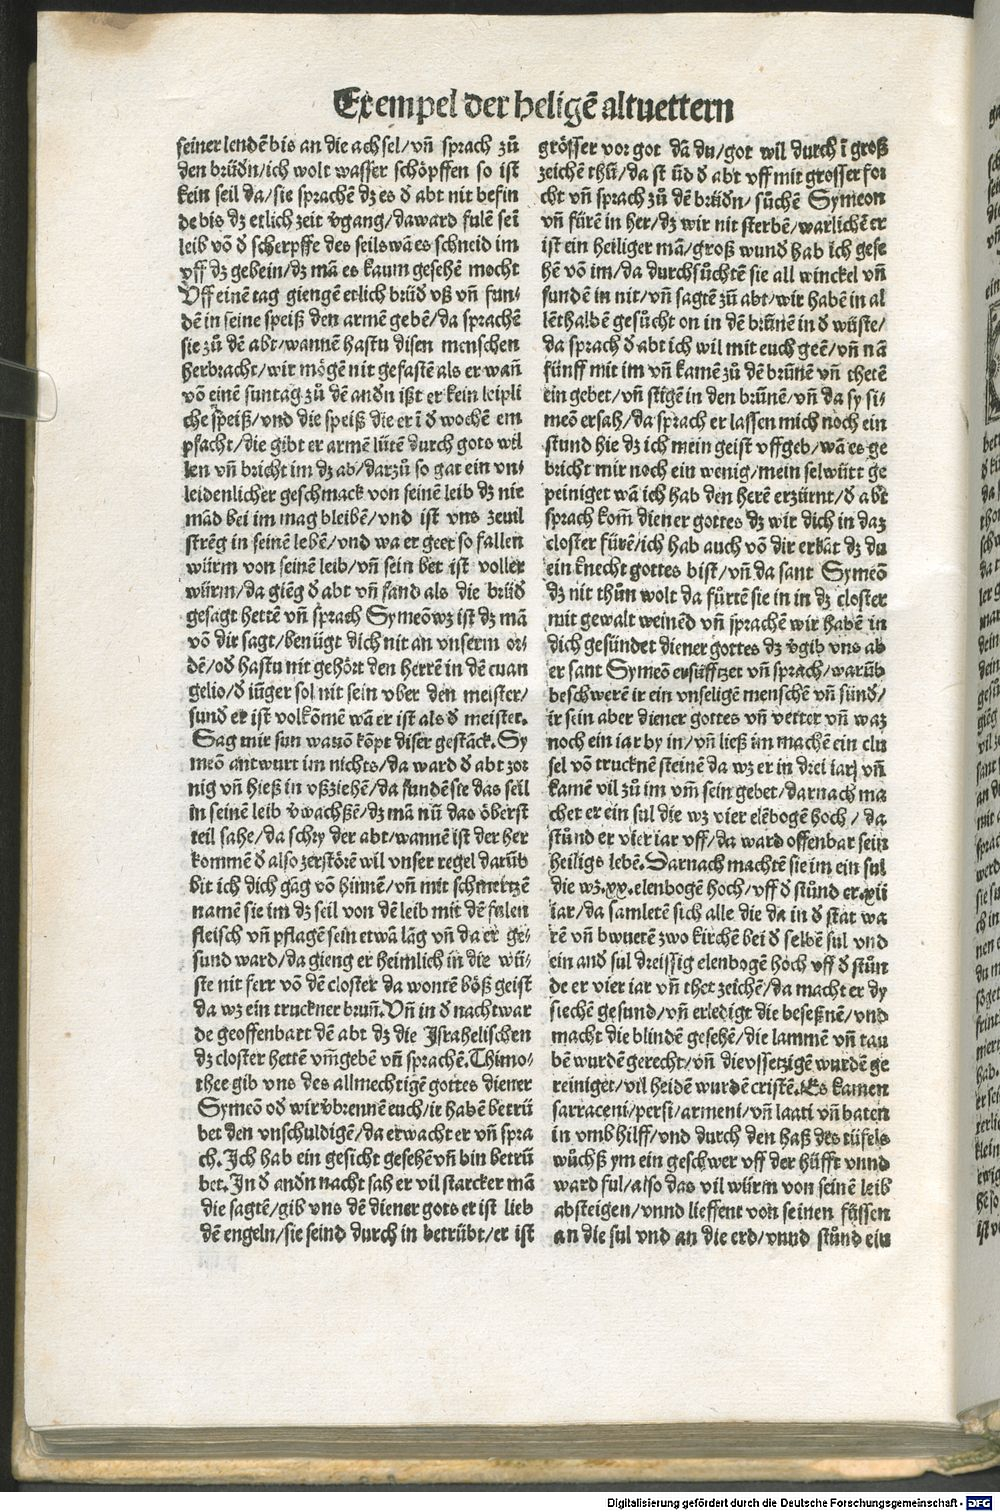 Exempel der heligē altuettern
seiner lendē bis an die achsel/ vn̄ sprach zů
den brüdn/ ich wolt wasser schöpffen so ist
kein seil da/ sie sprachē dz es d abt nit befin
de bis dz etlich zeit v̄gang/ da ward fulē sei
leib vō d scherpffe des seils wā es schneid im
vff dz gebein/ dz mā es kaum gesehē mocht
Vff einē tag giengē etlich brüd vß vn̄ fun⸗
dē in seine speiß den armē gebē/ da sprachē
sie zů dē abt/ wannē hastu disen menschen
herbracht/ wir mögē nit gefastē als er wan̄
vō einē suntag zů dē andn ißt er kein leipli
che speiß/ vnd die speiß die er ī d wochē em
pfacht/ die gibt er armē lütē durch gots wil
len vn̄ bricht im dz ab/ darzů so gar ein vn⸗
leidenlicher geschmack von seinē leib dz nie
mād bei im mag bleibē/ vnd ist vns zeuil
strēg in seinē lebē/ vnd wa er geet so fallen
würm von seinē leib/ vn̄ sein bet ist voller
würm/ da giēg d abt vn̄ fand als die brüd
gesagt hettē vn̄ sprach Symeō wz ist dz mā
vō dir sagt/ benügt dich nit an vnserm or⸗
dē/ od hastu nit gehört den herrē in dē euan
gelio/ d iūger sol nit sein vber den meister/
sund er ist volkōmē wā er ist als d meister.
Sag mir sun wauō kōpt diser gestāck. Sy
meō antwurt im nichts/ da ward d abt zor
nig vn̄ hieß in vßziehē/ da fundē sie das seil
in seinē leib v̄wachßē/ dz mā nū das öberst
teil sahe/ da schry der abt/ wannē ist der her
kommē d also zerstörē wil vnser regel darūb
bit ich dich gāg vō hinnē/ vn̄ mit schmertzē
namē sie im dz seil von dē leib mit dē fulen
fleisch vn̄ pflagē sein etwa lāg vn̄ da er ge⸗
sund ward/ da gieng er heimlich in die wü⸗
ste nit ferr vō dē closter da wontē böß geist
da wz ein truckner brun̄. Vn̄ in d nacht war
de geoffenbart dē abt dz die Israhelischen
dz closter hettē vm̄gebē vn̄ sprachē. Thimo⸗
thee gib vns des allmechtigē gottes diener
Symeō od wir v̄brennē euch/ ir habē betrü
bet den vnschuldigē/ da erwacht er vn̄ spra
ch. Ich hab ein gesicht gesehē vn̄ bin betrü
bet. In d andn nacht sah er vil starcker mā
die sagtē/ gib vns dē diener gots er ist lieb
dē engeln/ sie seind durch in betrübt/ er ist
grösser vor got dā du/ got wil durch ī groß
zeichē thū/ da st ūd d abt vff mit grosser for
cht vn̄ sprach zů dē brüdn/ sůchē Symeon
vn̄ fürē in her/ dz wir nit sterbē/ warlichē er
ist ein heiliger mā/ groß wund hab ich gese
hē vō im/ da durchsůchtē sie all winckel vn̄
fundē in nit/ vn̄ sagtē zů abt/ wir habē in al
lēthalbē gesůcht on in dē brūnē in d wüste/
da sprach d abt ich wil mit euch geē/ vn̄ nā
fünff mit im vn̄ kamē zů dē brūnē vn̄ thetē
ein gebet/ vn̄ stigē in den brūnē/ vn̄ da sy si⸗
meō ersah/ da sprach er lassen mich noch ein
stund hie dz ich mein geist vffgeb/ wā es ge
bricht mir noch ein wenig/ mein sel würt ge
peiniget wā ich hab den herē erzürnt/ d abt
sprach kom̄ diener gottes dz wir dich in daz
closter fürē/ ich hab auch vō dir erkāt dz du
ein knecht gottes bist/ vn̄ da sant Symeō
dz nit thůn wolt da fürtē sie in in dz closter
mit gewalt weinēd vn̄ sprachē wir habē in
dich gesündet diener gottes dz v̄gib vns ab
er sant Symeō ersüfftzet vn̄ sprach/ warūb
beschwerē ir ein vnseligē menschē vn̄ sünd/
ir sein aber diener gottes vn̄ vetter vn̄ waz
noch ein iar by in/ vn̄ ließ im machē ein clu
sel vō trucknē steinē da wz er in drei iarj vn̄
kamē vil zů im vm̄ sein gebet/ darnach ma
chet er ein sul die wz vier elēbogē hoch/ da
stůnd er vier iar vff/ da ward offenbar sein
heiligs lebē. Darnach machtē sie im ein sul
die wz .xx. elenbogē hoch/ vff d stůnd er .xii
iar/ da samletē sich alle die da in d stat wa
rē vn̄ bwuetē zwo kirchē bei d selbē sul vnd
ein and sul dreissig elenbogē hoch vff d stůn
de er vier iar vn̄ thet zeichē/ da macht er dy
siechē gesund/ vn̄ erledigt die beseßnē/ vnd
macht die blindē gesehē/ die lammē vn̄ tau
bē wurdē gerecht/ vn̄ die vssetzigē wurdē ge
reiniget/ vil heidē wurdē cristē. Es kamen
sarraceni/ persi/ armeni/ vn̄ laati vn̄ baten
in vmb hilff/ vnd durch den haß des tüfels
wůchß ym ein geschwer vff der hüfft vnnd
ward ful/ also das vil würm von seinē leib
absteigen/ vnnd lieffent von seinen füssen
an die sul vnd an die erd/ vnnd stůnd ein
Digitalisierung gefördert durch die Deutsche Forschungsgemeinschaft - DFG